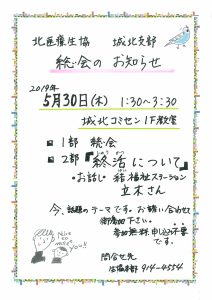 北医療生協 城北支部
総会のお知らせ
2019年
5月30日(木) 1:30~3:30
城北コミセン 1F教室
1部 総会
2部 『終活について』
・お話し 結 福祉ステーション
立木さん
今、話題のテーマです。お誘い合わせ
御参加下さい。
参加無料 申込不要
です。
Nice to meet you!!
問合せ先
914-4554